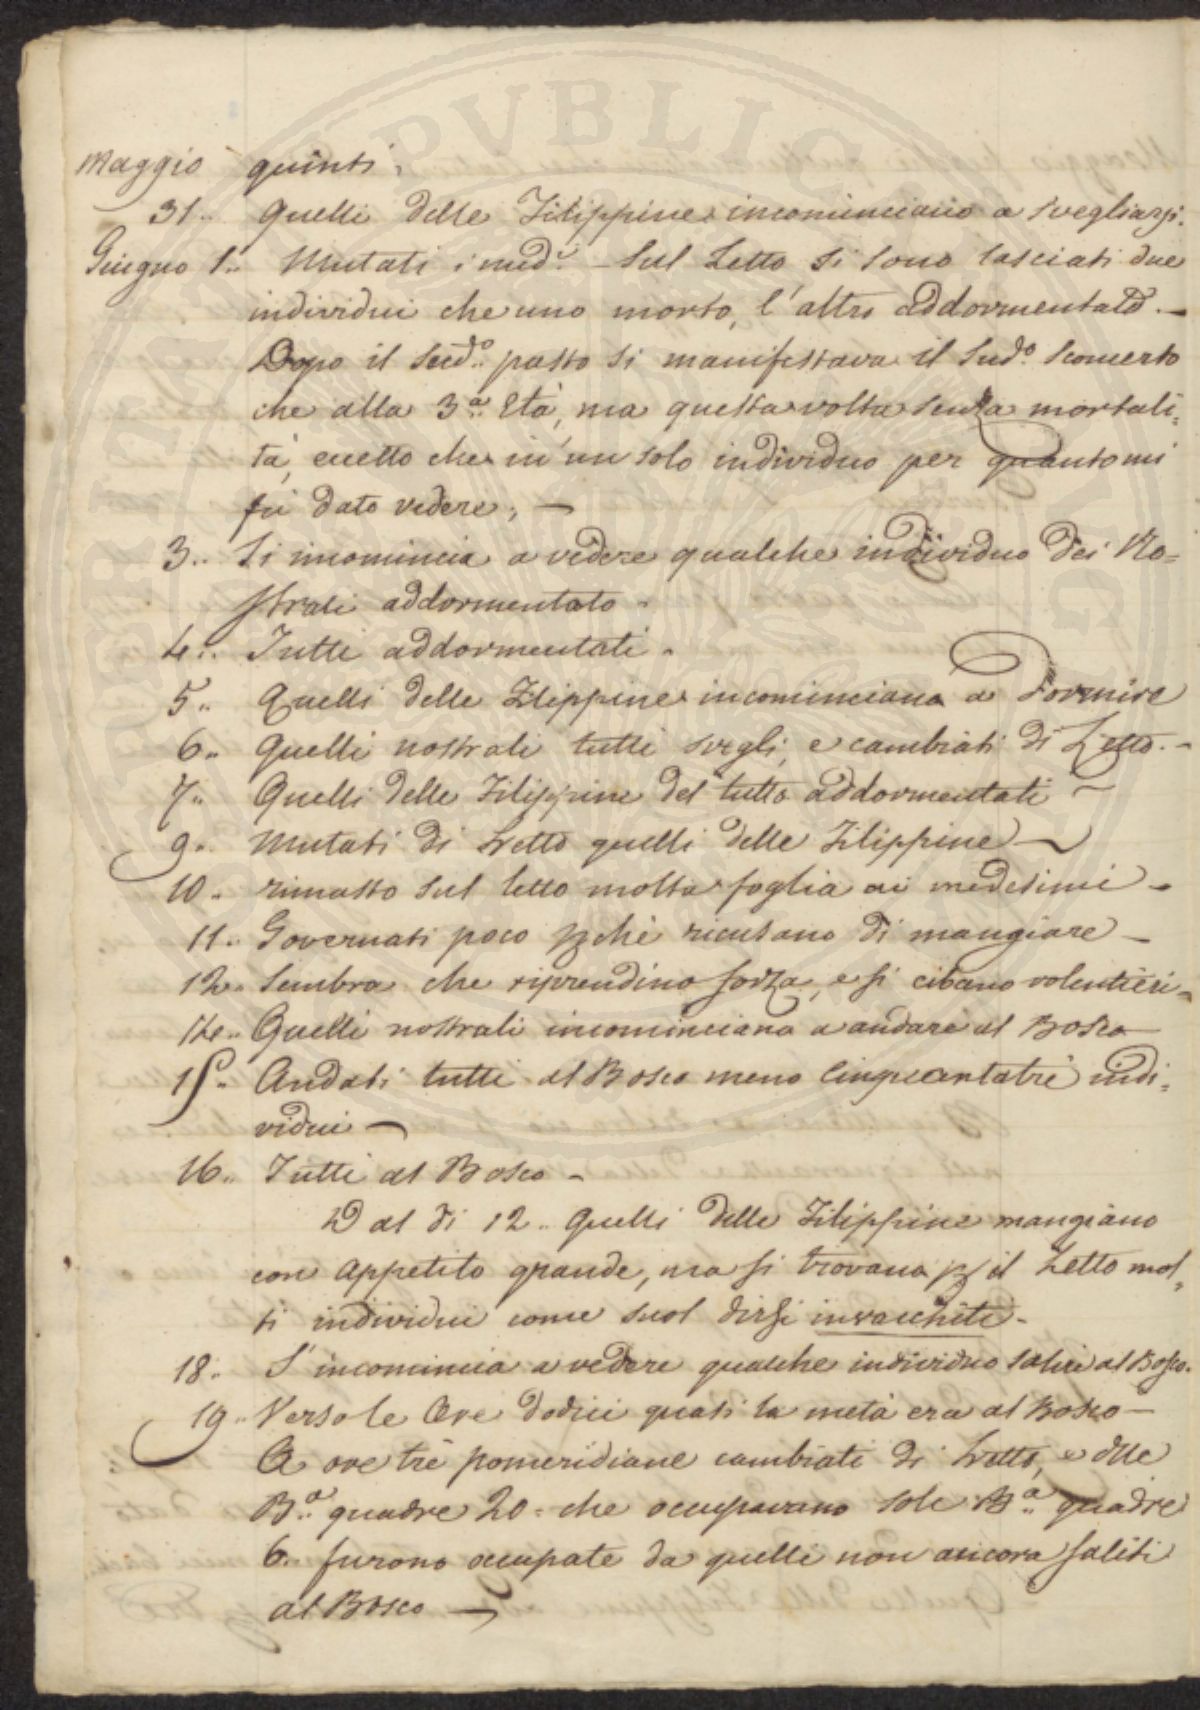 Maggio quinti;
31.. Quelli delle Filippine incominciano a svegliarsi.
Giugno 1.. Mutati i med.i – Sul Letto si sono lasciati due
individui che uno morto, l'altro addormentato. –
Dopo il sud.o pasto si manifestava il sud.o sconcerto
che alla 3.a Età, ma questa volta senza mortali=
tà, eccetto che in un solo individuo per quanto mi
fù dato vedere; –
3.. Si incomincia a vedere qualche individuo dei No=
strali addormentato.
4.. Tutti addormentati.
5.. Quelli delle Filippine incominciano a dormire
6.. Quelli nostrali tutti svegli, e cambiati di Letto. –
7.. Quelli delle Filippine del tutto addormentati –
9.. Mutati di Letto quelli delle Filippine –
10.. rimasto sul letto molta foglia ai medesimi –
11.. Governati poco pchè ricusano di mangiare –
12.. Sembra che riprendino forza, e si cibano volentieri –
14.. Quelli nostrali incominciano a andare al Bosco
15.. Andati tutti al Bosco meno Cinquantatrè indi=
vidui –
16.. Tutti al Bosco –
Dal di 12.. Quelli delle Filippine mangiano
con appetito grande, ma si trovano p il Letto mol=
ti individui come suol dirsi invacchiti.
18.. S'incomincia a vedere qualche individuo salire al Bosco.
19.. Verso le Ore dodici quasi la metà era al Bosco –
A ore trè pomeridiane cambiati di Letto, e dlle
B.a quadre 20 = che occupavano sole B.a quadre
6.. furono occupate da quelli non ancora saliti
al Bosco –
PVBLIC